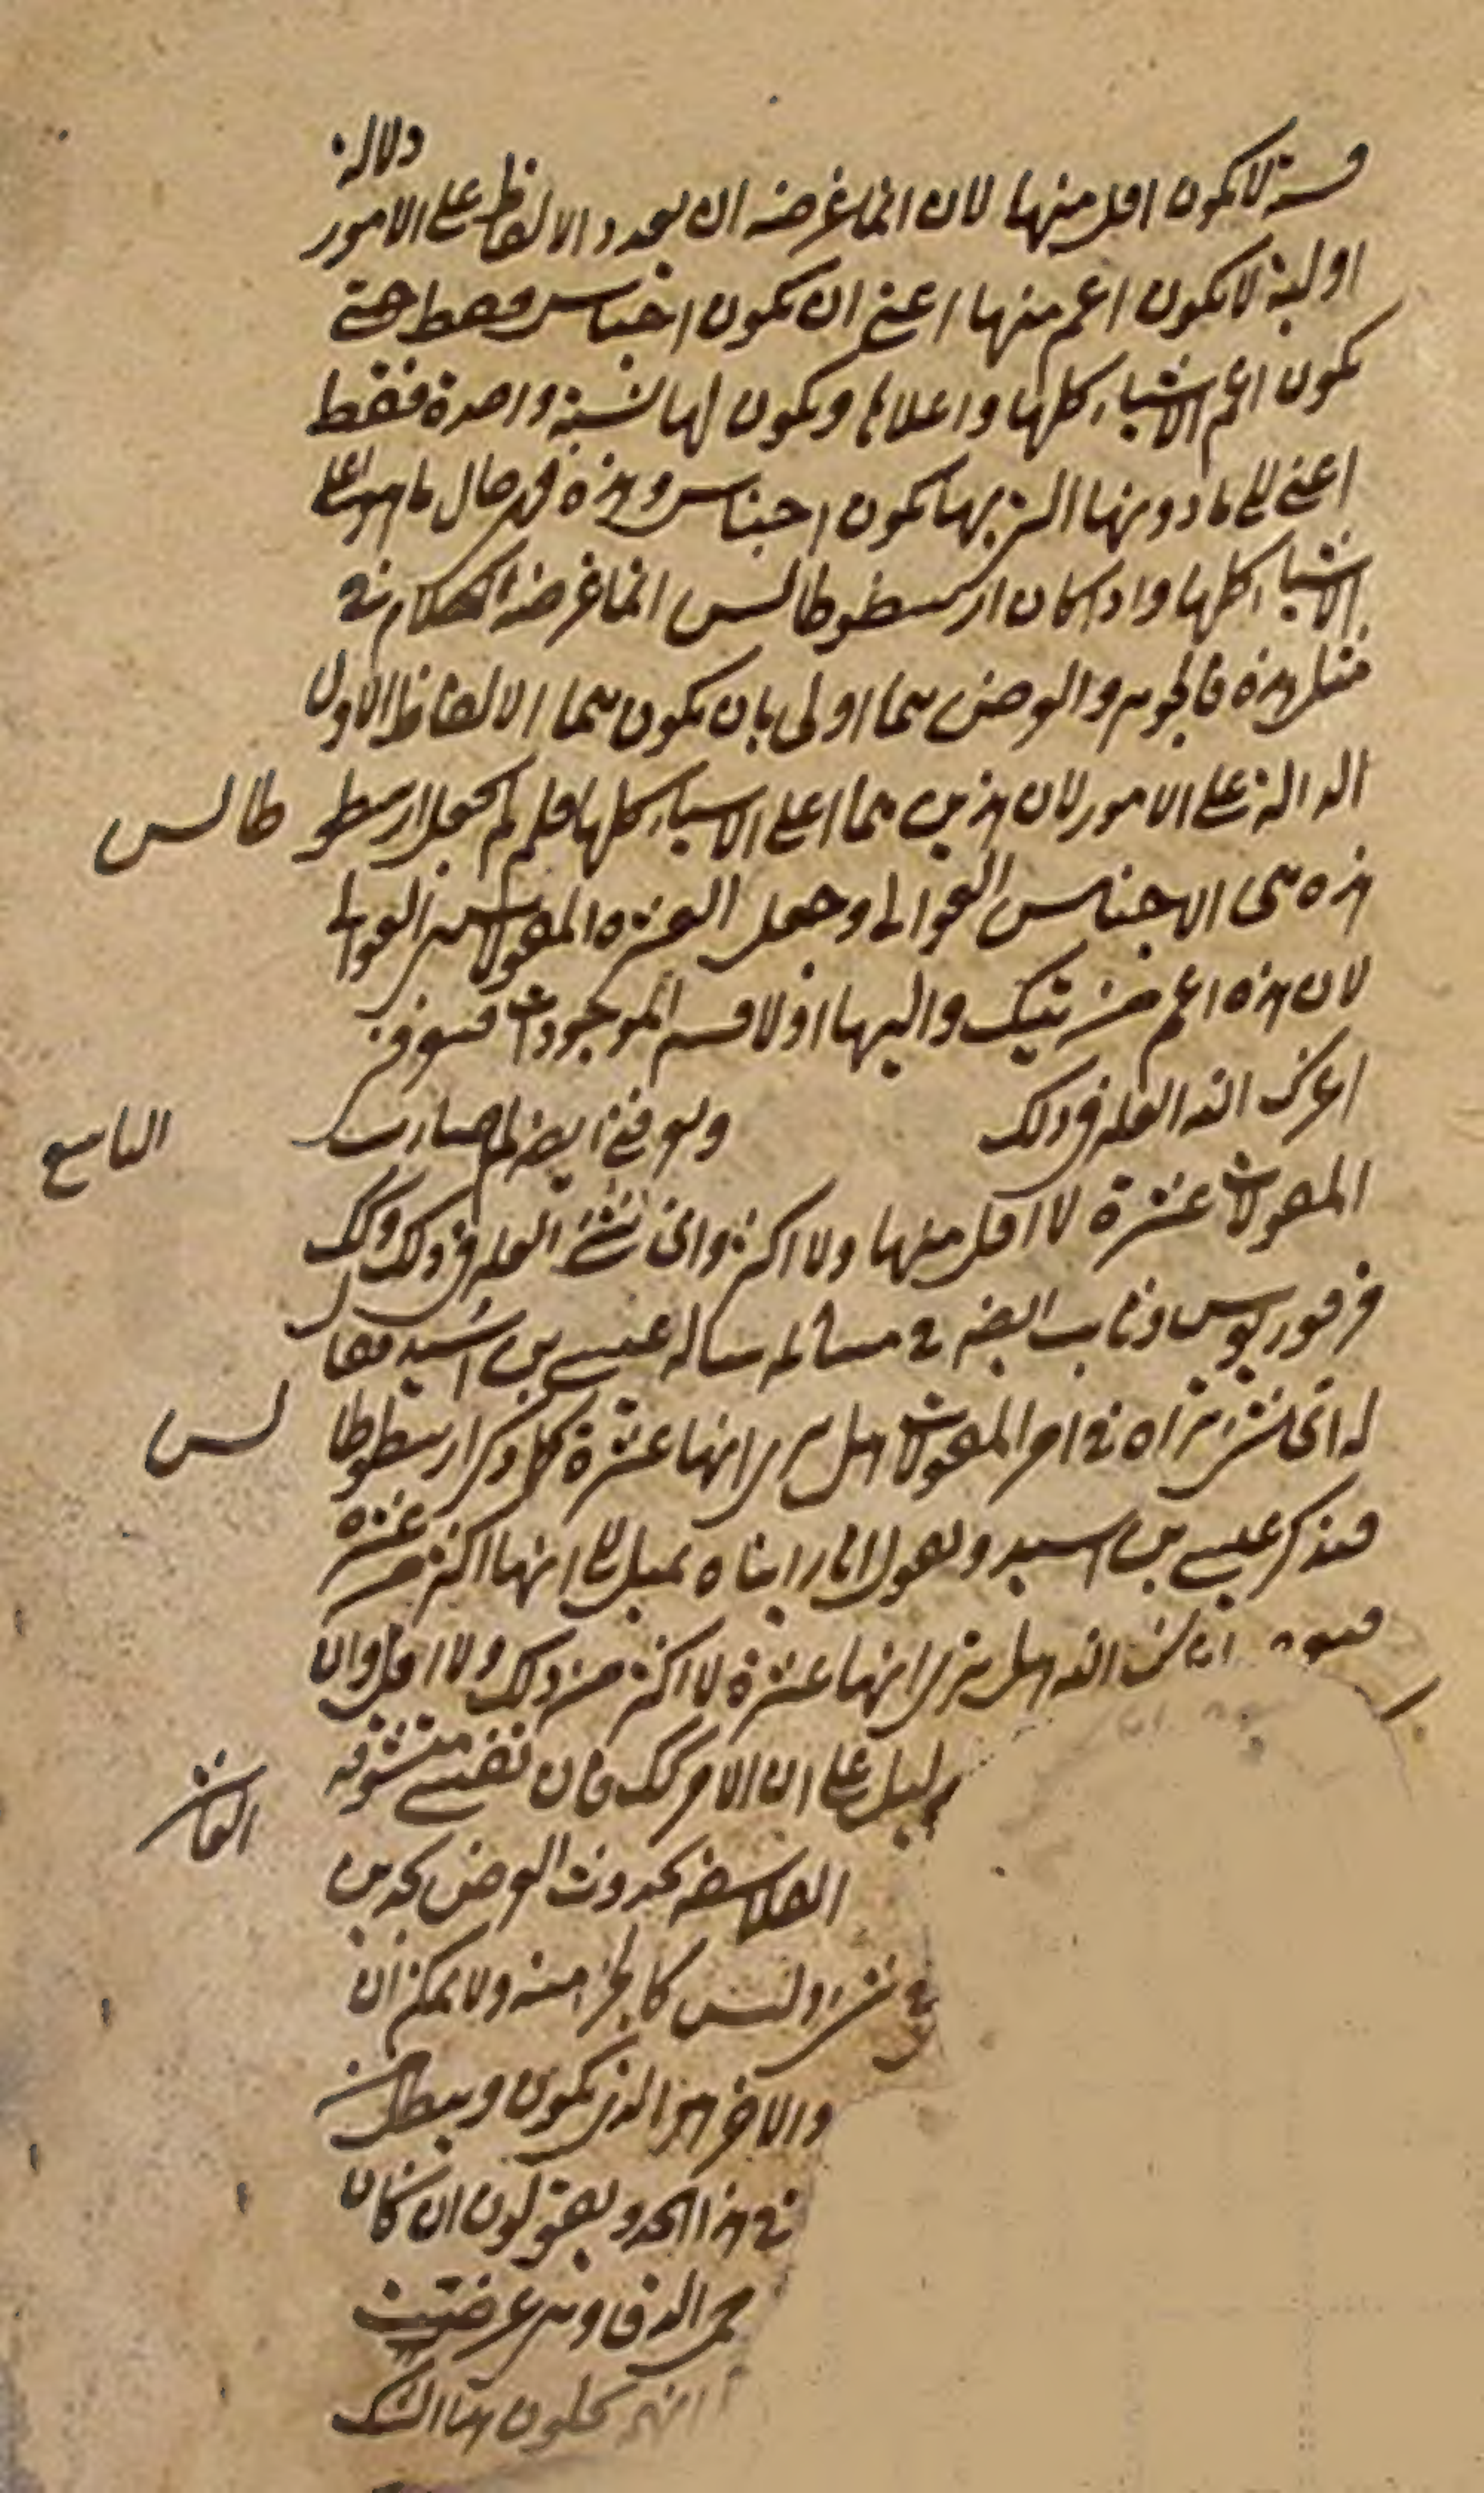 دلالة
قسمة لا يكون اقل منها لان انما غرضه ان يعدد الالفاظ على الامور
اولية لا يكون اعم منها اعني ان يكون اجناس فقط حتى
يكون اعم الاشياء كلها واعلاها ويكون لها نسبة واحدة فقط
اعني الى ما دونها التي بها يكون اجناس وهذه في حال ما هو اعلى
الاشياء كلها واذا كان ارسطوطالس انما غرضه الكلام في
مثل هذه فالجوهر والعرض هما اولى بان يكون هما الالفاظ الاول
الدالة على الامور لان هذين هما اعلى الاشياء كلها فلم لم يجعل ارسطو طالس
هذه هي الاجناس العوالي وجعل العشرة المقولات هي العوالي
لان هذه اعم من تيك واليها اولا قسم الموجودات فسوفني
اعزك الله العلة في ذلك وسوفني ايضا لم صارت التاسع
المقولات عشرة لا اقل منها ولا اكثر واني شيء العلة في ذلك وكك
فرفوريوس وثاب ايضا في مسألة سأله عيسى بن اسيد فقال
له اي شيء تراه في امر المقولات هل ترى انها عشرة كما ذكر ارسطوطا لس
فذكر عيسى بن اسيد ويقول انا رايناه يميل الى انها اكثر من عشرة
الله هل ترى انها عشرة لا اكثر من ذلك ولا اقل وان
دليل على ان الامر كك فان نفسي متشوقة
العاشر
الفلاسفة يحدون العرض بحدين
في شيء وليس كالجزء منه ولا يمكن ان
والاخر هو الذي يكون ويبطل من
في هذا الحد ويقولون ان كان
عرضيت
انهم يحلون هذا الشك